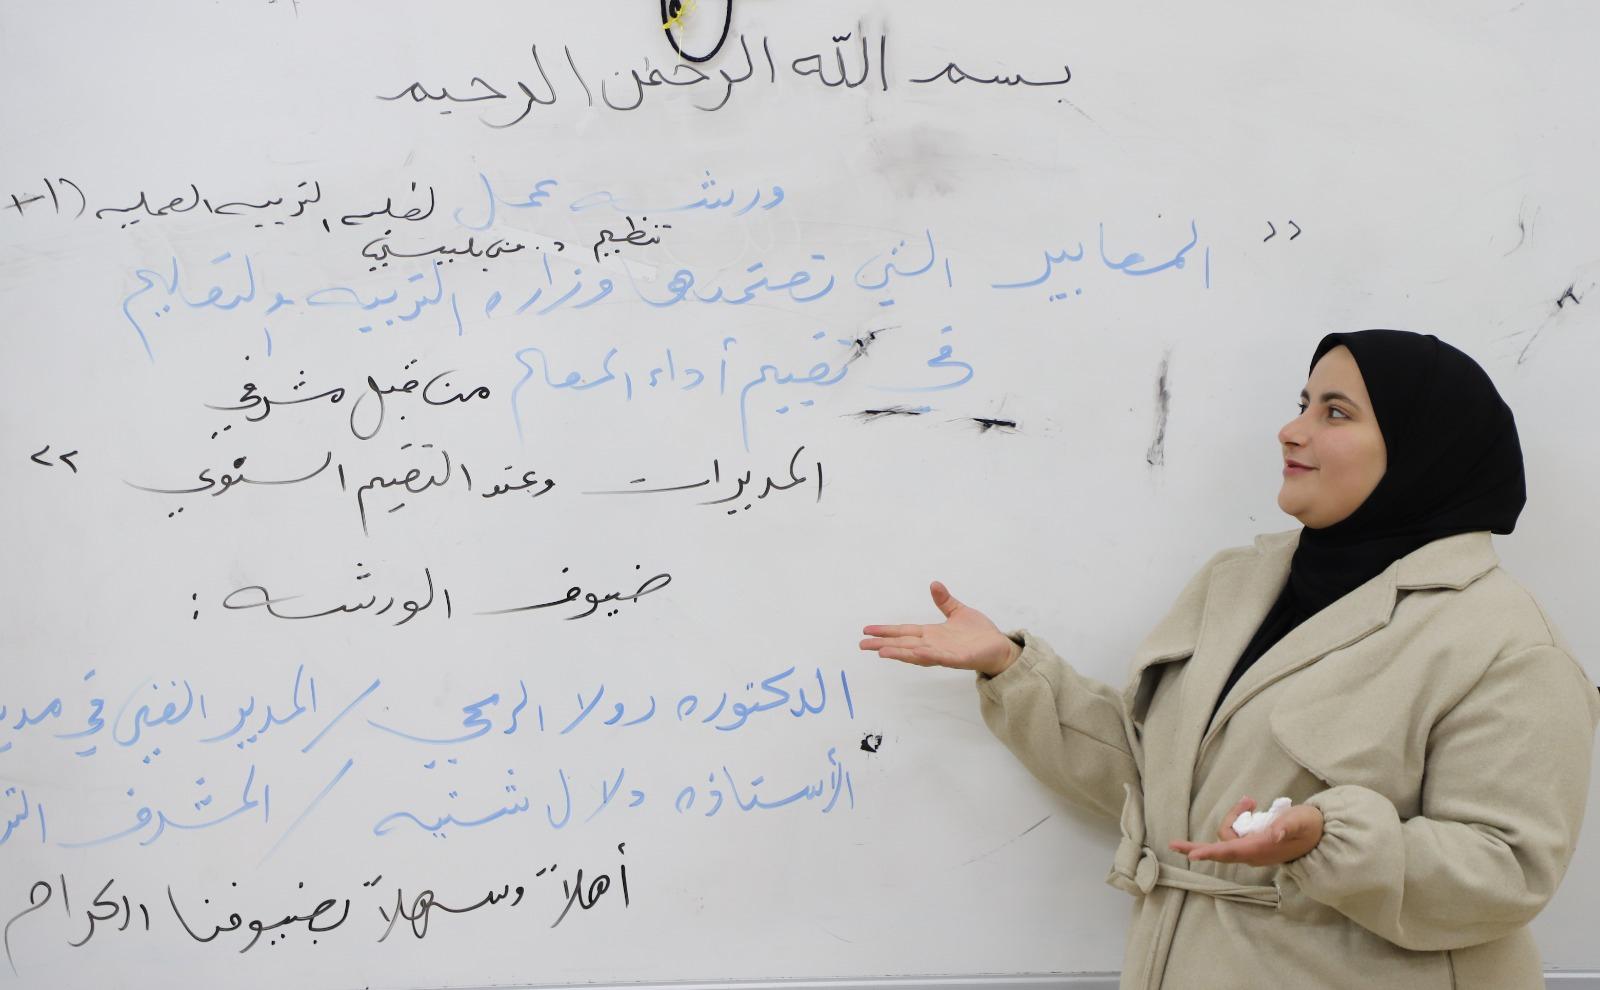 بسم الله الرحمن الرحيم
ورشة عمل لطلبة التربية العملية (1+
تنظيم د. منى بلبيسي
" المعايير التي تعتمدها وزارة التربية والتعليم
في تقييم أداء المعلم من قبل مشرفي
المديرات وعند التقيم السنوي "
ضيوف الورشة :
الدكتورة رولا الرمحي / المدير الفني في
الأستاذة دلال شتيه / المشرف
أهلاً وسهلاً بضيوفنا الكرام